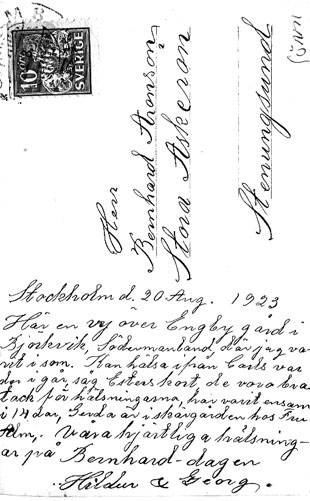 10
SVERIGE
Herr
Bernhard Aronson
Stora Askerön
Stenungsund
Stockholm d. 20 Aug. 1923
Här en vy över Engby gård i
Björkvik, Södermanland, där jag va-
rit i som. Kan hälsa ifrån Carls var
der i går, såg Esters kort de voro bra
tack för hälsningarna, har varit ensam
i 14 dar, Gerda är i skärgården hos Fru
Våra hjärtliga hälsning-
ar på Bernhard-dagen
Hildur & Georg.